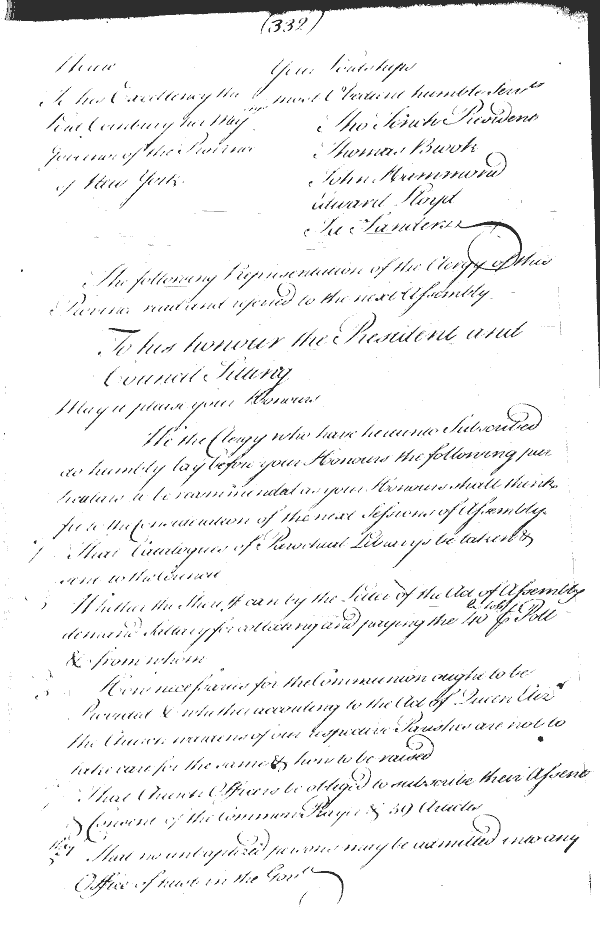 (332)
I have Your Lordships
To his Excellency the most Obedient humble Servts
Lord Cornbury her Majtys Tho Tench President
Governor of the Province Thomas Brook
of New York. John Hammond
Edward Lloyd
Ja Sanders
The following Representation of the Clergy of this
Province read and refered to the next Assembly
To his honour the President and
Council Sitting
May it please your Honours
We the Clergy who have hereunto Subscribed
do humbly lay before your Honours the following par
ticulars to be recommended as your Honours shall think
fit to the Consideration of the next Sessions of Assembly.
That Catalogues of Parochial Librarys be taken &
sent to the Council
Whether the Sheriff can by the Letter of the Act of Assembly
demand Sallary for collecting and paying the 40 lb tobo P Poll
& from whom
How necessaries for the Communion ought to be
Provided & whether according to the Act of Queen Eliz
the Church wardens of our respective Parishes are not to
take care for the same & how to be raised
That Church Officers be obliged to subscribe their Assent
& Consent of the Common Prayer & 39 Articles
That no unbaptized persons may be admitted into any
Office of trust in the Govt